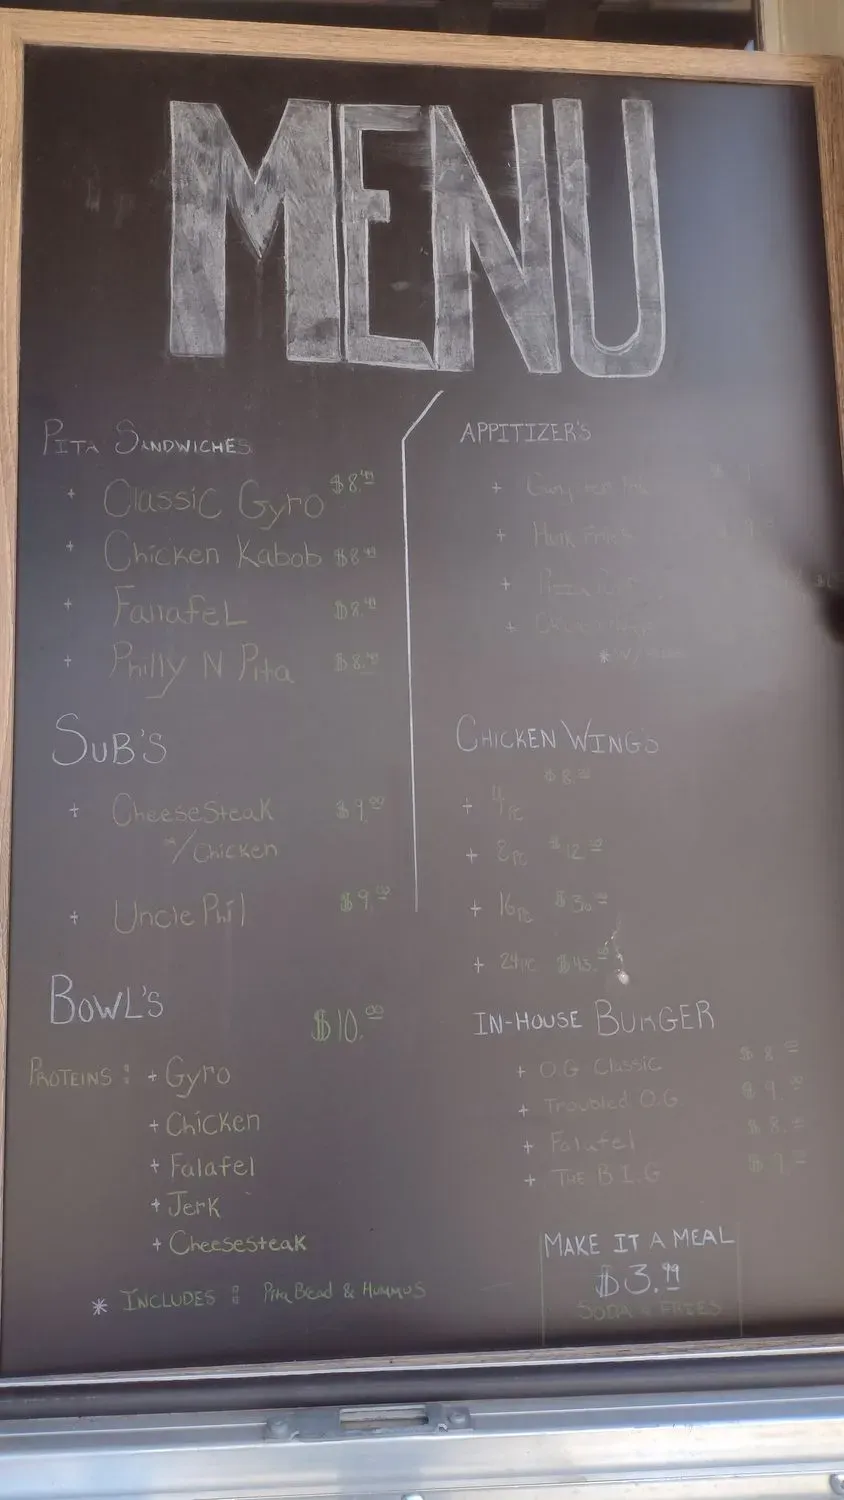 MENU
PITA SANDWICHES
+ Classic Gyro $8.49
+ Chicken Kabob $8.49
+ FallafeL $8.49
+ Philly N Pita $8.49
SUB'S
+ CheeseSteak $9.00
w/Chicken
+ Uncle Phil $9.00
BOWL'S $10.00
PROTEINS : + Gyro
+ Chicken
+ Falafel
+ Jerk
+ Cheesesteak
* INCLUDES : Pita Bead & HUMMUS
APPITIZER'S
+
+ Fries
+
+
*W/
CHICKEN WING'S
$8.00
+ 4PC
+ 8PC $12.00
+ 16PC $30.00
+ 24PC $45.00
IN-HOUSE BURGER
+ O.G Classic $8.00
+ Troubled O.G. $9.00
+ Falafel $8.00
+ THE B.I.G $9.00
MAKE IT A MEAL
$3.99
SODA & FRIES